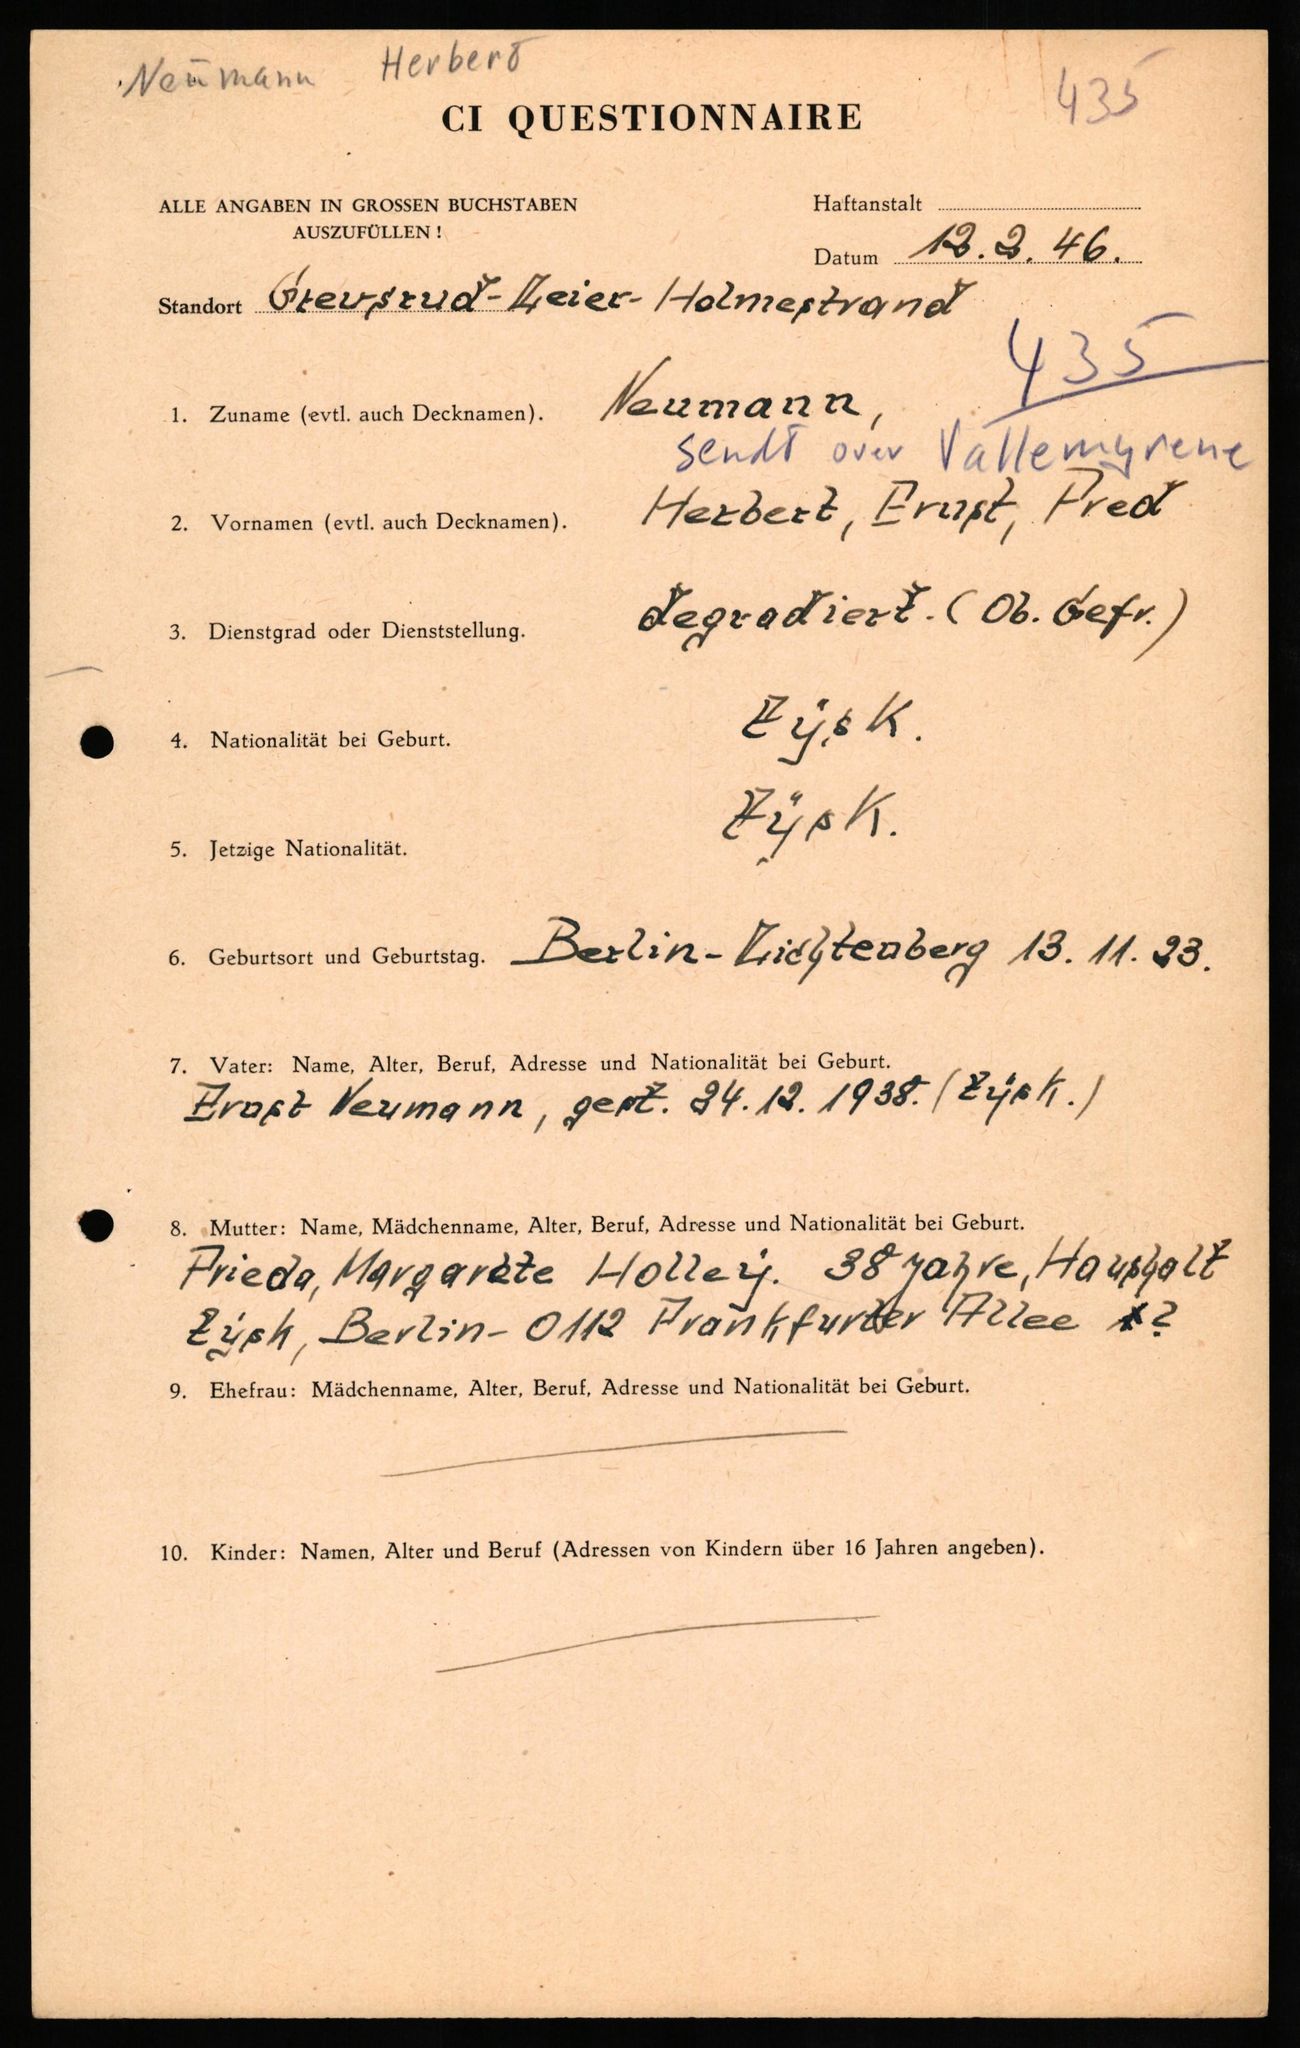 Neumann Herbert
435
CI QUESTIONNAIRE
ALLE ANGABEN IN GROSSEN BUCHSTABEN
AUSZUFÜLLEN !
Haftanstalt
Datum 12.2.46.
Standort Grevsrud-Leier-Holmestrand
435
1. Zuname (evtl. auch Decknamen). Neumann,
sendt over Vallemyrene
2. Vornamen (evtl. auch Decknamen). Herbert, Ernst, Fred
3. Dienstgrad oder Dienststellung. degradiert. (Ob. Gefr.)
4. Nationalität bei Geburt. Tÿsk.
5. Jetzige Nationalität. Tÿsk.
6. Geburtsort und Geburtstag. Berlin-Lichtenberg 13. 11. 23.
7. Vater: Name, Alter, Beruf, Adresse und Nationalität bei Geburt.
Ernst Neumann, gest. 24.12.1938. (Tÿsk.)
8. Mutter: Name, Mädchenname, Alter, Beruf, Adresse und Nationalität bei Geburt.
Frieda, Margarete Holleÿ. 38 Jahre, Haushalt
Tÿsk, Berlin-O112 Frankfurter Allee ?
9. Ehefrau: Mädchenname, Alter, Beruf, Adresse und Nationalität bei Geburt.
10. Kinder: Namen, Alter und Beruf (Adressen von Kindern über 16 Jahren angeben).